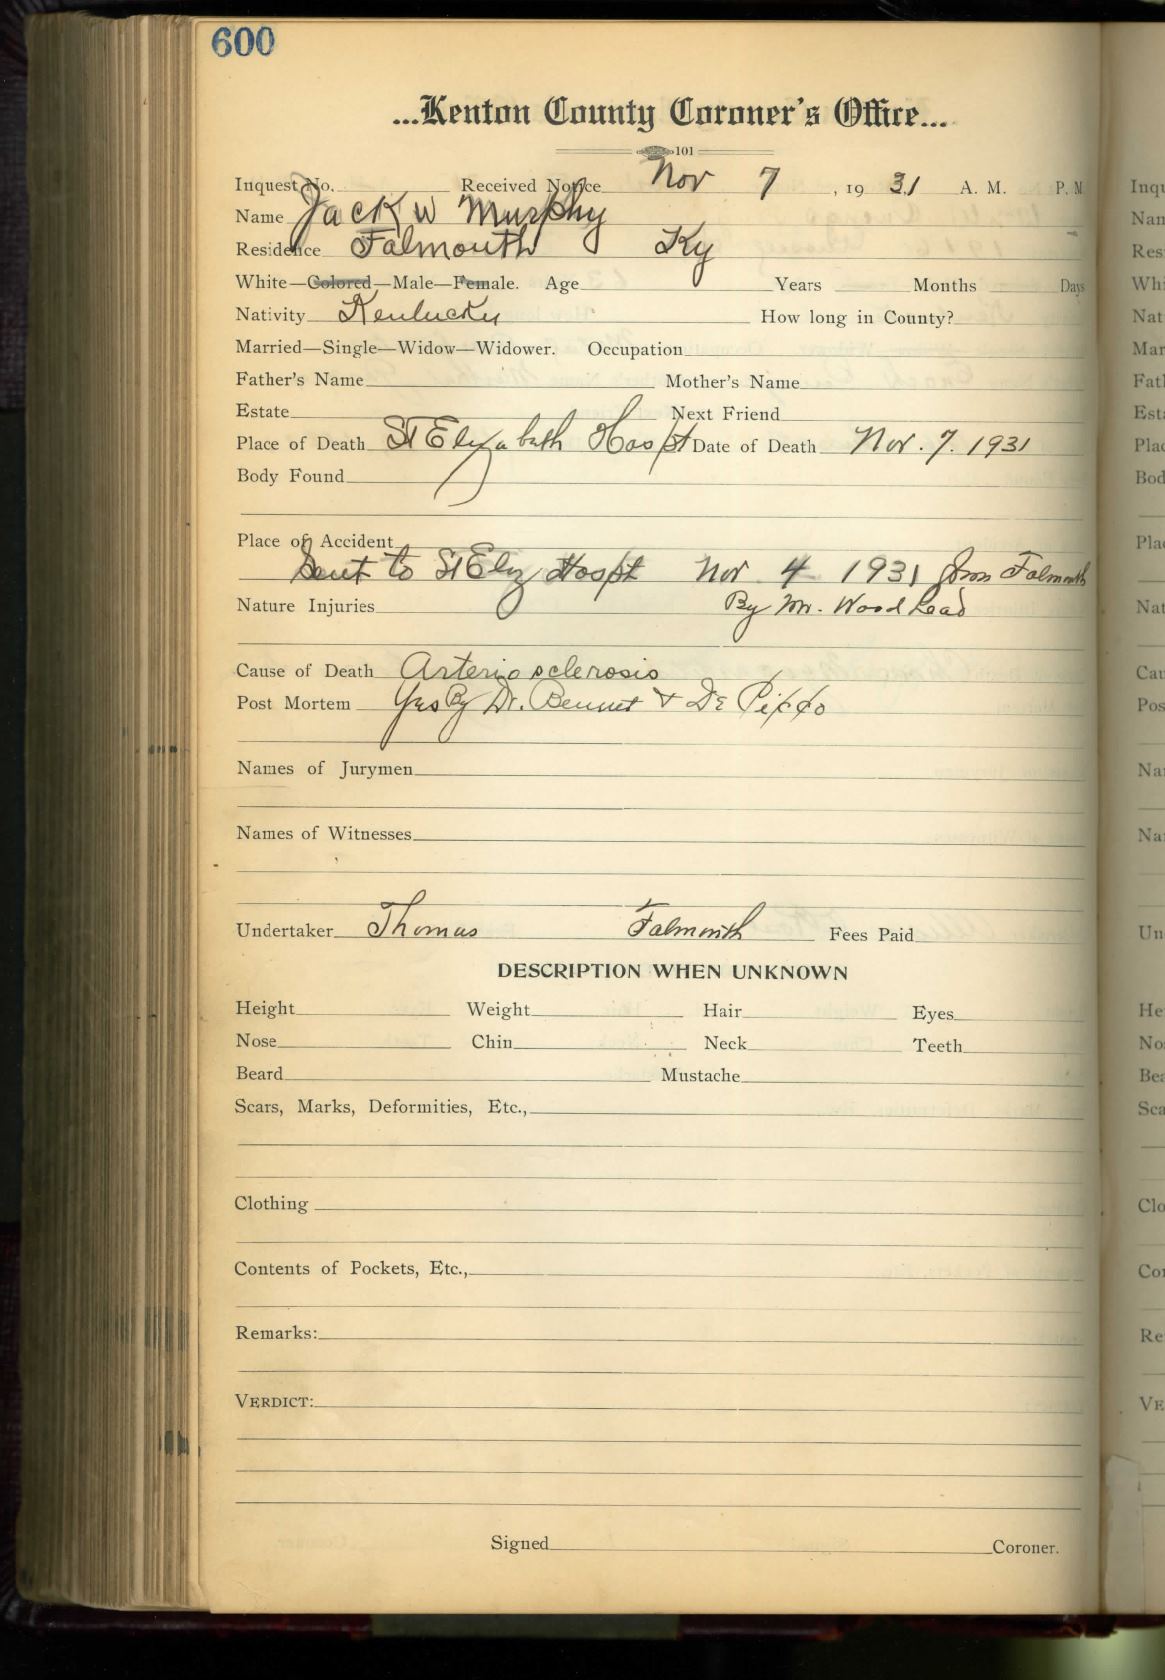 600
...Kenton County Coroner's Office...
101
Inquest No. Received Notice Nov 7, 1931 A. M. P. M
Name Jack W Murphy
Residence Falmouth Ky
White—Colored—Male—Female. Age Years Months Days
Nativity Kentucky How long in County?
Married—Single—Widow—Widower. Occupation
Father's Name Mother's Name
Estate Next Friend
Place of Death St Elizabeth Hospt Date of Death Nov. 7. 1931
Body Found
Place of Accident
Sent to St Eliz Hospt Nov 4 1931 from Falmouth
Nature Injuries By Mr. Woodhead
Cause of Death Arteriosclerosis
Post Mortem Yes By Dr. Bennet & Dr
Names of Jurymen
Names of Witnesses
Undertaker Thomas Falmouth Fees Paid
DESCRIPTION WHEN UNKNOWN
Height Weight Hair Eyes
Nose Chin Neck Teeth
Beard Mustache
Scars, Marks, Deformities, Etc.,
Clothing
Contents of Pockets, Etc.,
Remarks:
VERDICT:
Signed Coroner.